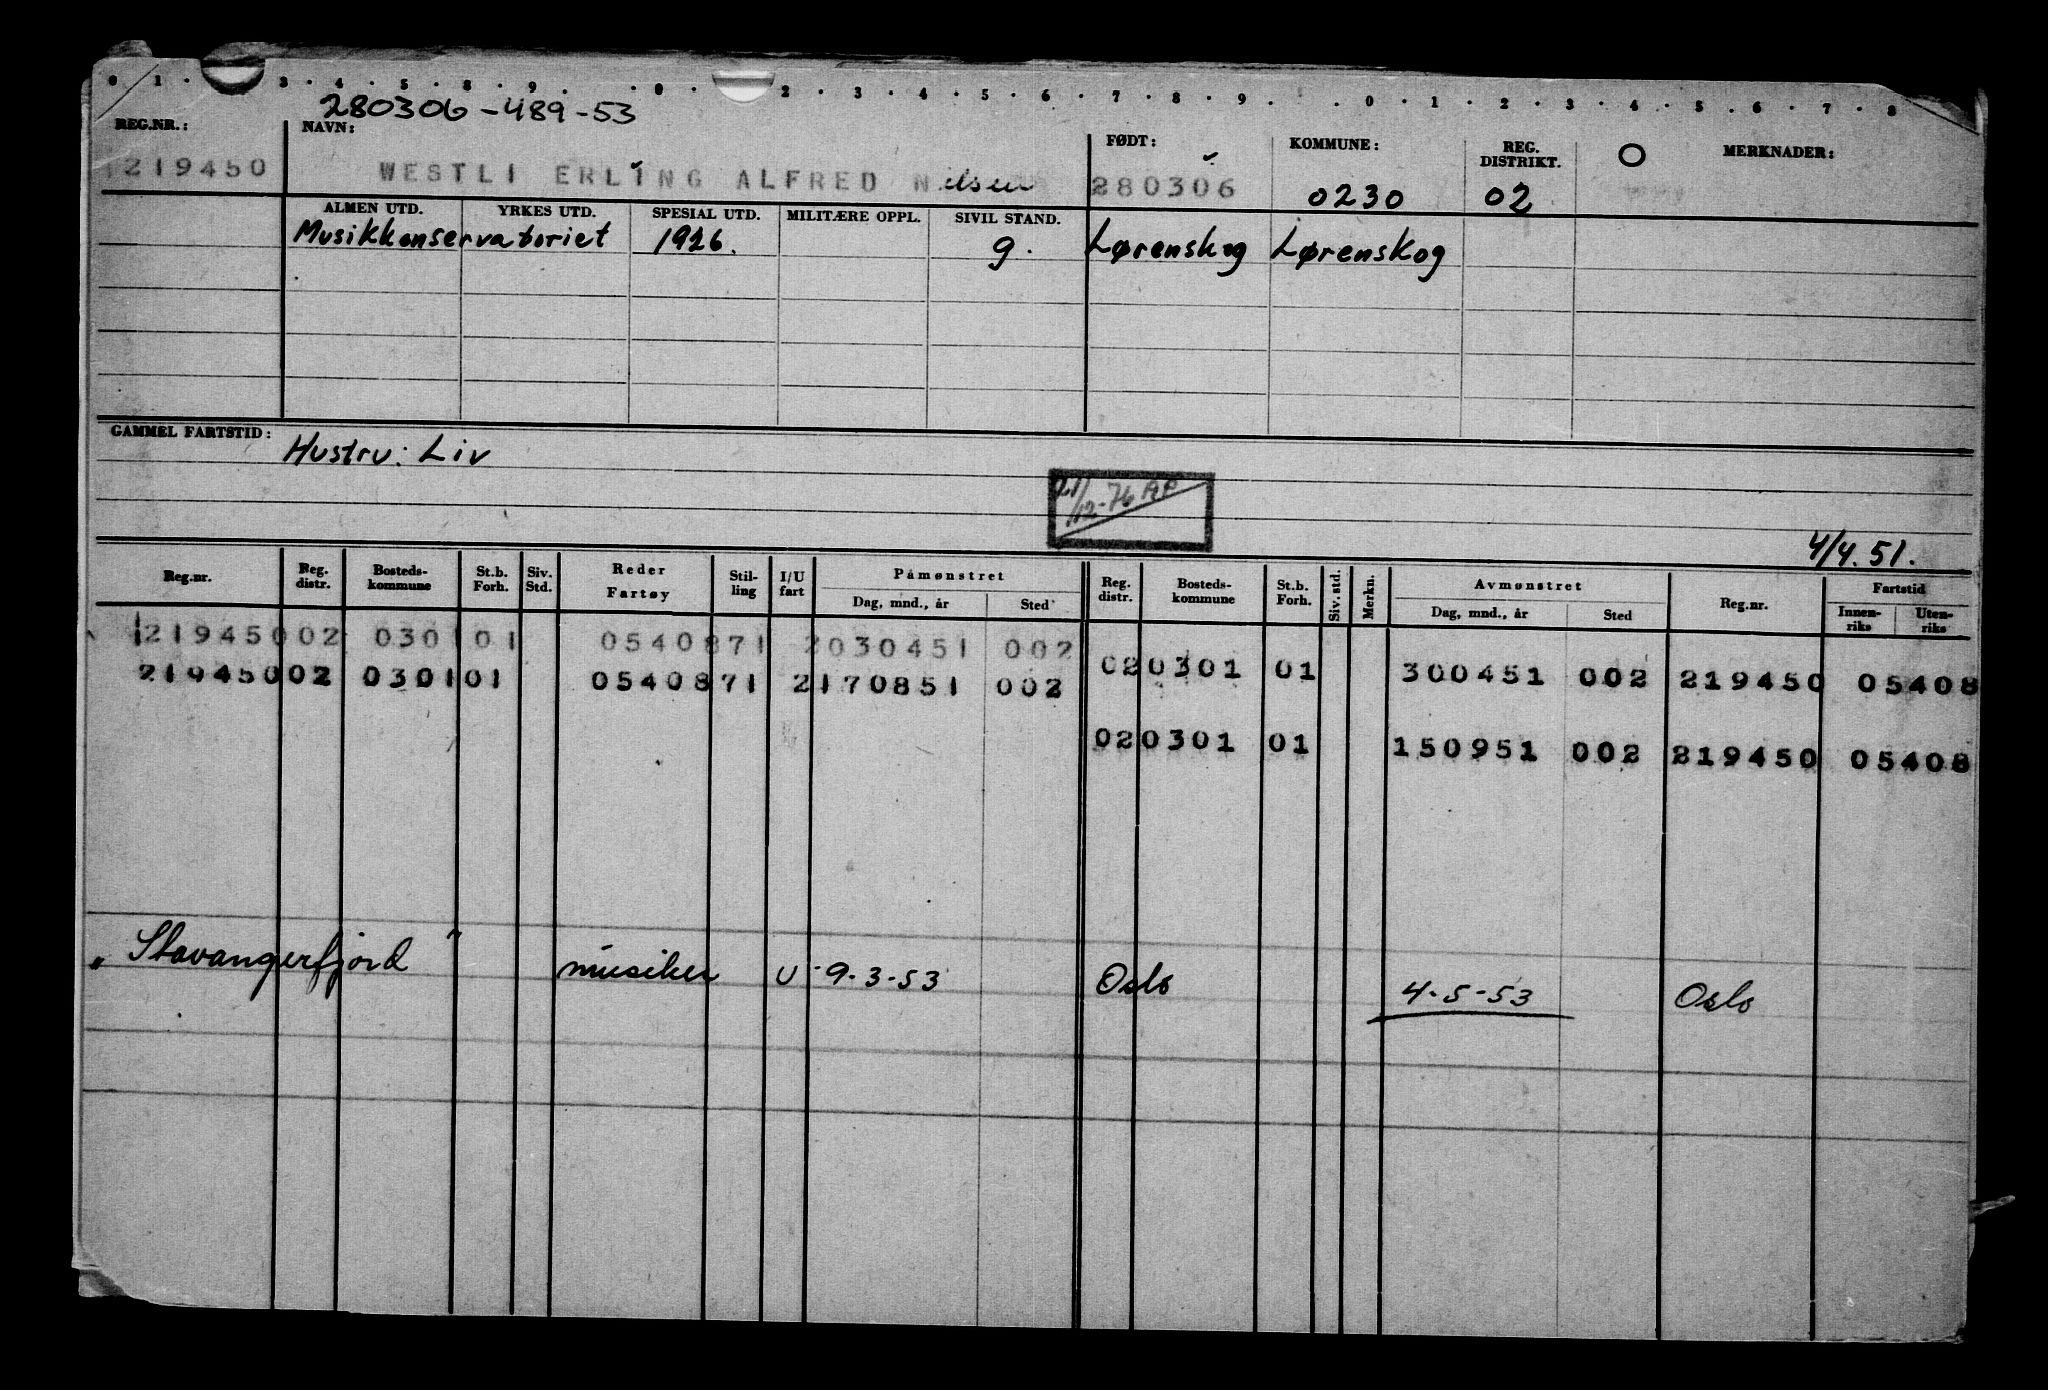 0 1 · · 3 · 4 · 5 · 8 · 9 · · 0 · · 2 · 3 · 4 · 5 · 6 · 7 · 8 · 9 · · 0 · 1 · 2 · 3 · 4 · 5 · 6 · 7 · 8
280306-489-53
REG.NR.: NAVN: FØDT: KOMMUNE: REG. DISTRIKT. O MERKNADER:
219450 WESTLI ERLING ALFRED Nilsen 280306 0230 02
ALMEN UTD. YRKES UTD. SPESIAL UTD. MILITÆRE OPPL. SIVIL STAND.
Musikkonservatoriet 1926. g. Lørenskog Lørenskog
GAMMEL FARTSTID: Hustru: Liv
21/12-76 AP
4/4.51.
Reg.nr. Reg. distr. Bosteds-kommune St.b. Forh. Siv. Std. Reder Fartøy Stil-ling I/U fart Påmønstret Dag, mnd., år Sted Reg. distr. Bosteds-kommune St.b. Forh. Siv. std. Merkn. Avmønstret Dag, mnd., år Sted Reg.nr. Fartstid Innen-riks Uten-riks
219450 02 0301 01 0540871 2 030451 002
219450 02 0301 01 0540871 2 170851 002
02 0301 01 300451 002 219450 05408
02 0301 01 150951 002 219450 05408
"Stavangerfjord" musiker U 9-3-53 Oslo 4-5-53 Oslo